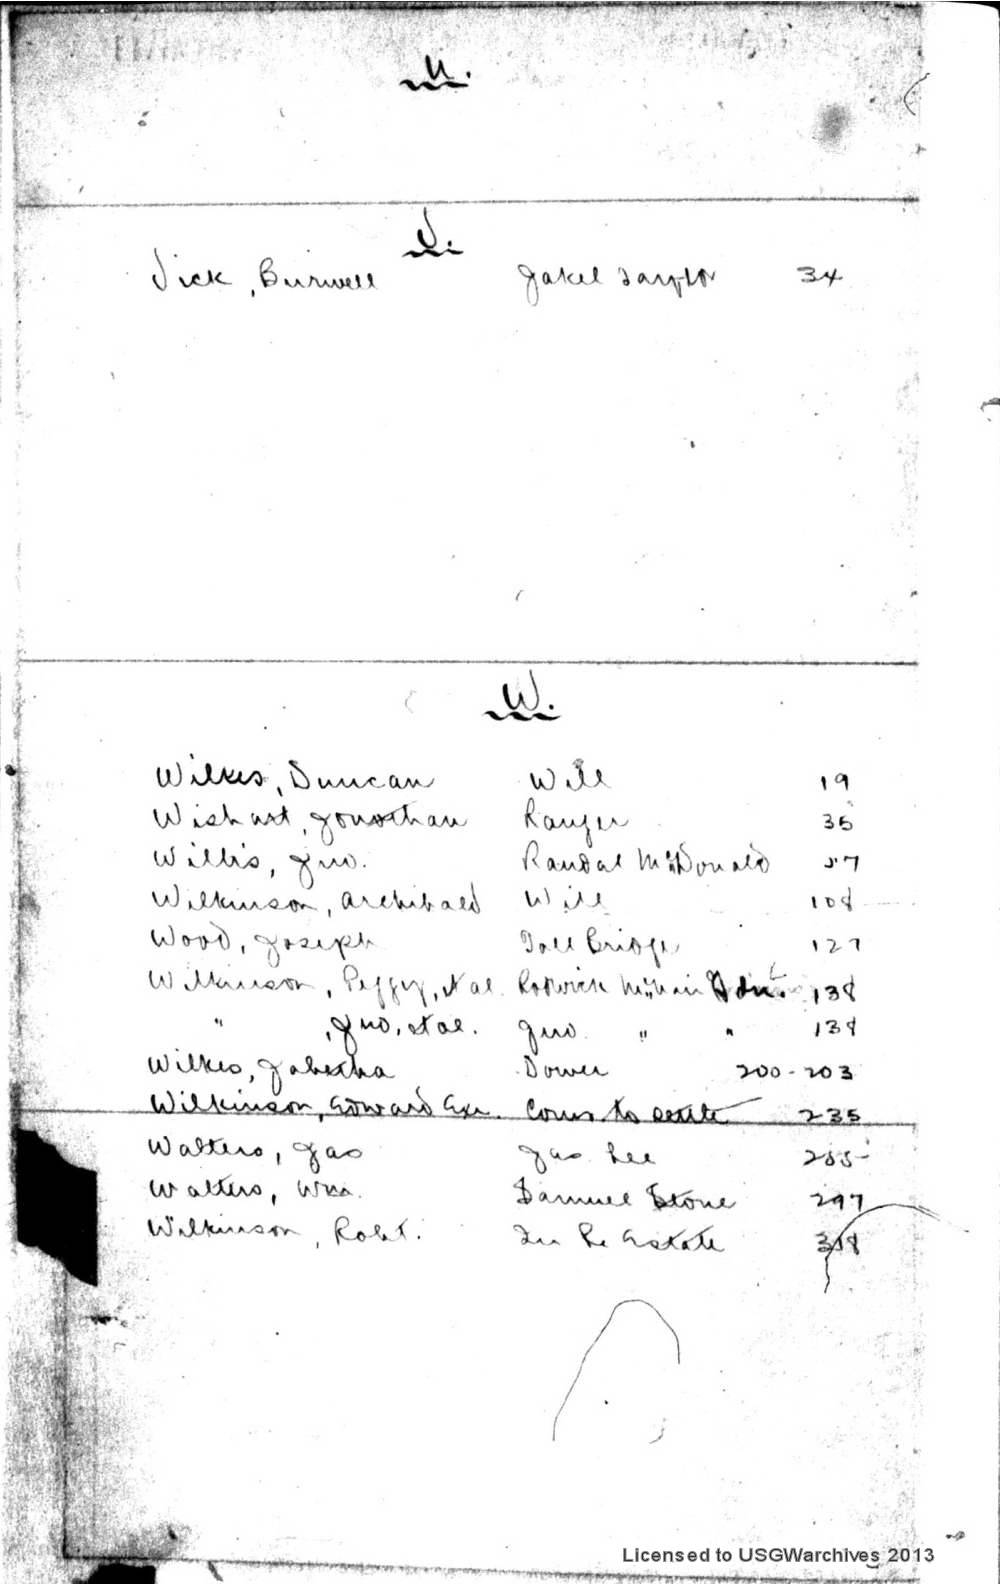 U.
V.
Vick, Burwell Jakel Taylor 34
W.
Wilkes, Duncan Will 19
Wishart, Jonathan Ranger 35
Willis, Jno. Randal McDonald 57
Wilkinson, Archibald Will 108
Wood, Joseph Toll Bridge 127
Wilkinson, Peggy, et al. Rodwick Adm. 138
" , Jno, et al. Jno. " " 138
Wilkes, Tabitha Dower 200-203
Wilkinson, Edward Exr. Coms to settle 235
Walters, Jas Jas. Lee 255
Walters, Wm. Samuel Stone 297
Wilkinson, Robt. In Re Estate 318
Licensed to USGWarchives 2013